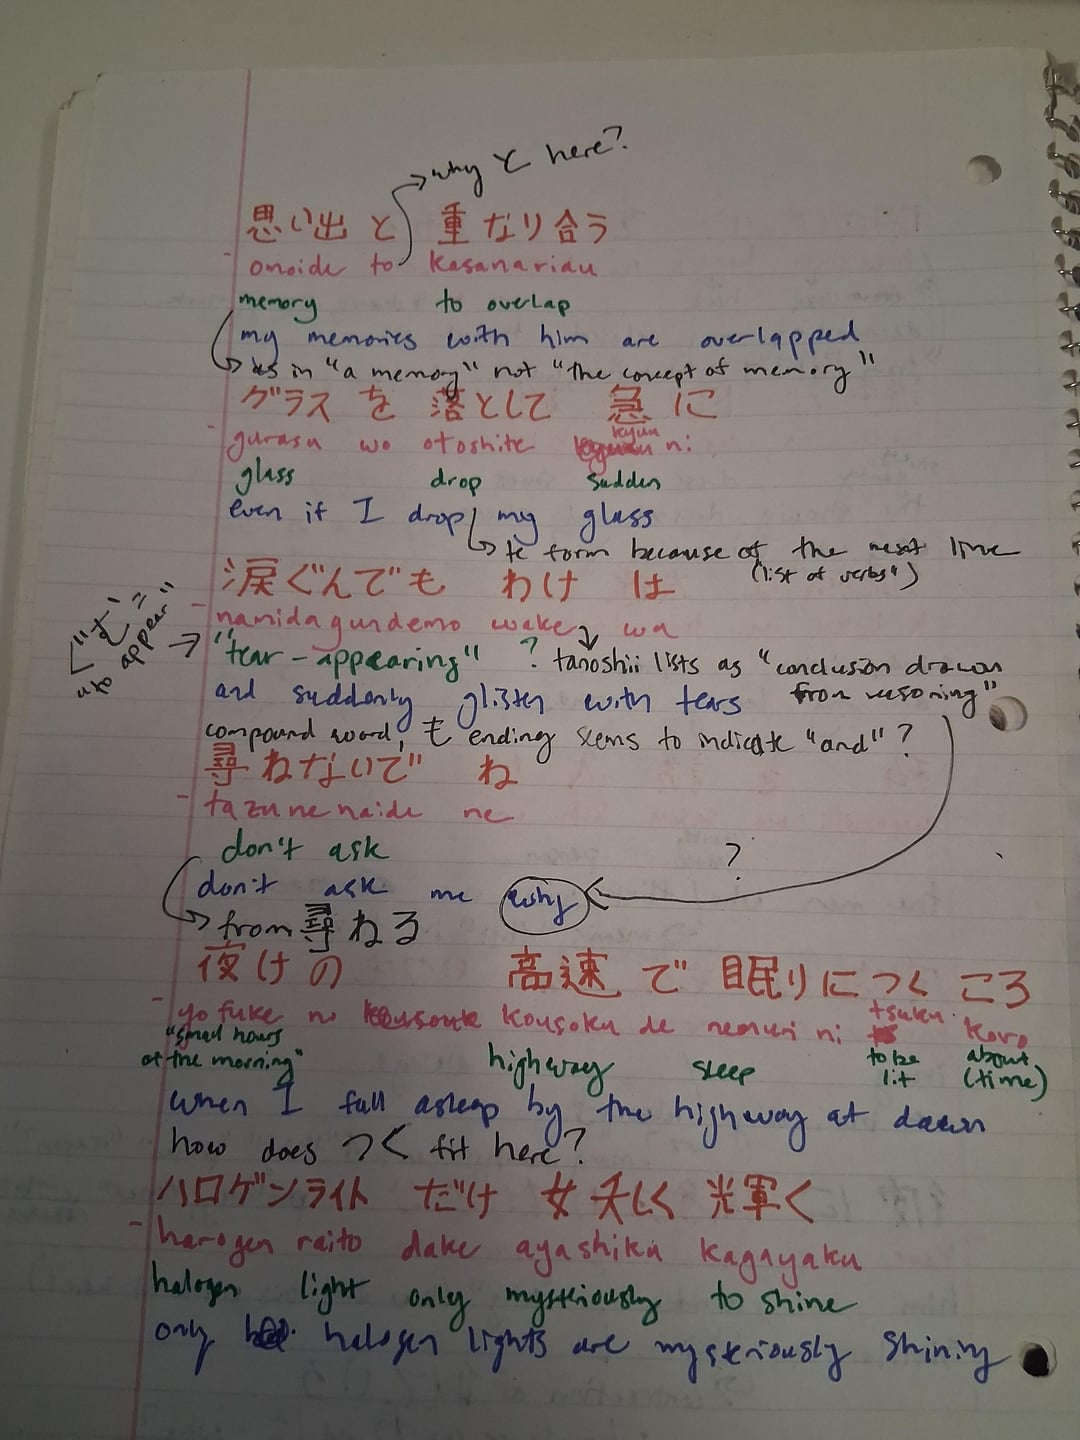 why と here?
思い出 と 重なり合う
- omoide to kasanariau
memory to overlap
my memories with him are overlapped
as in "a memory" not "the concept of memory"
グラス を 落として 急に
- gurasu wo otoshite kyuu ni
glass drop sudden
even if I drop my glass
te form because of the next line
(list of verbs")
涙ぐんでも わけ は
- namidagundemo wake wa
"む" =
to appear"
"tear-appearing" ? tanoshii lists as "conclusion drawn
from reasoning"
and suddenly glisten with tears
compound word, も ending seems to indicate "and"?
尋ねないで ね
- tazunenaide ne
don't ask
?
don't ask me why
from 尋ねる
夜けの 高速 で 眠りにつく ころ
- yofuke no kousoku de nemuri ni tsuku koro
"small hours
of the morning" highway sleep to be
lit about
(time)
when I fall asleep by the highway at dawn
how does つく fit here?
ハロゲンライト だけ 妖しく 輝く
- harogen raito dake ayashiku kagayaku
halogen light only mysteriously to shine
only halogen lights are mysteriously shining